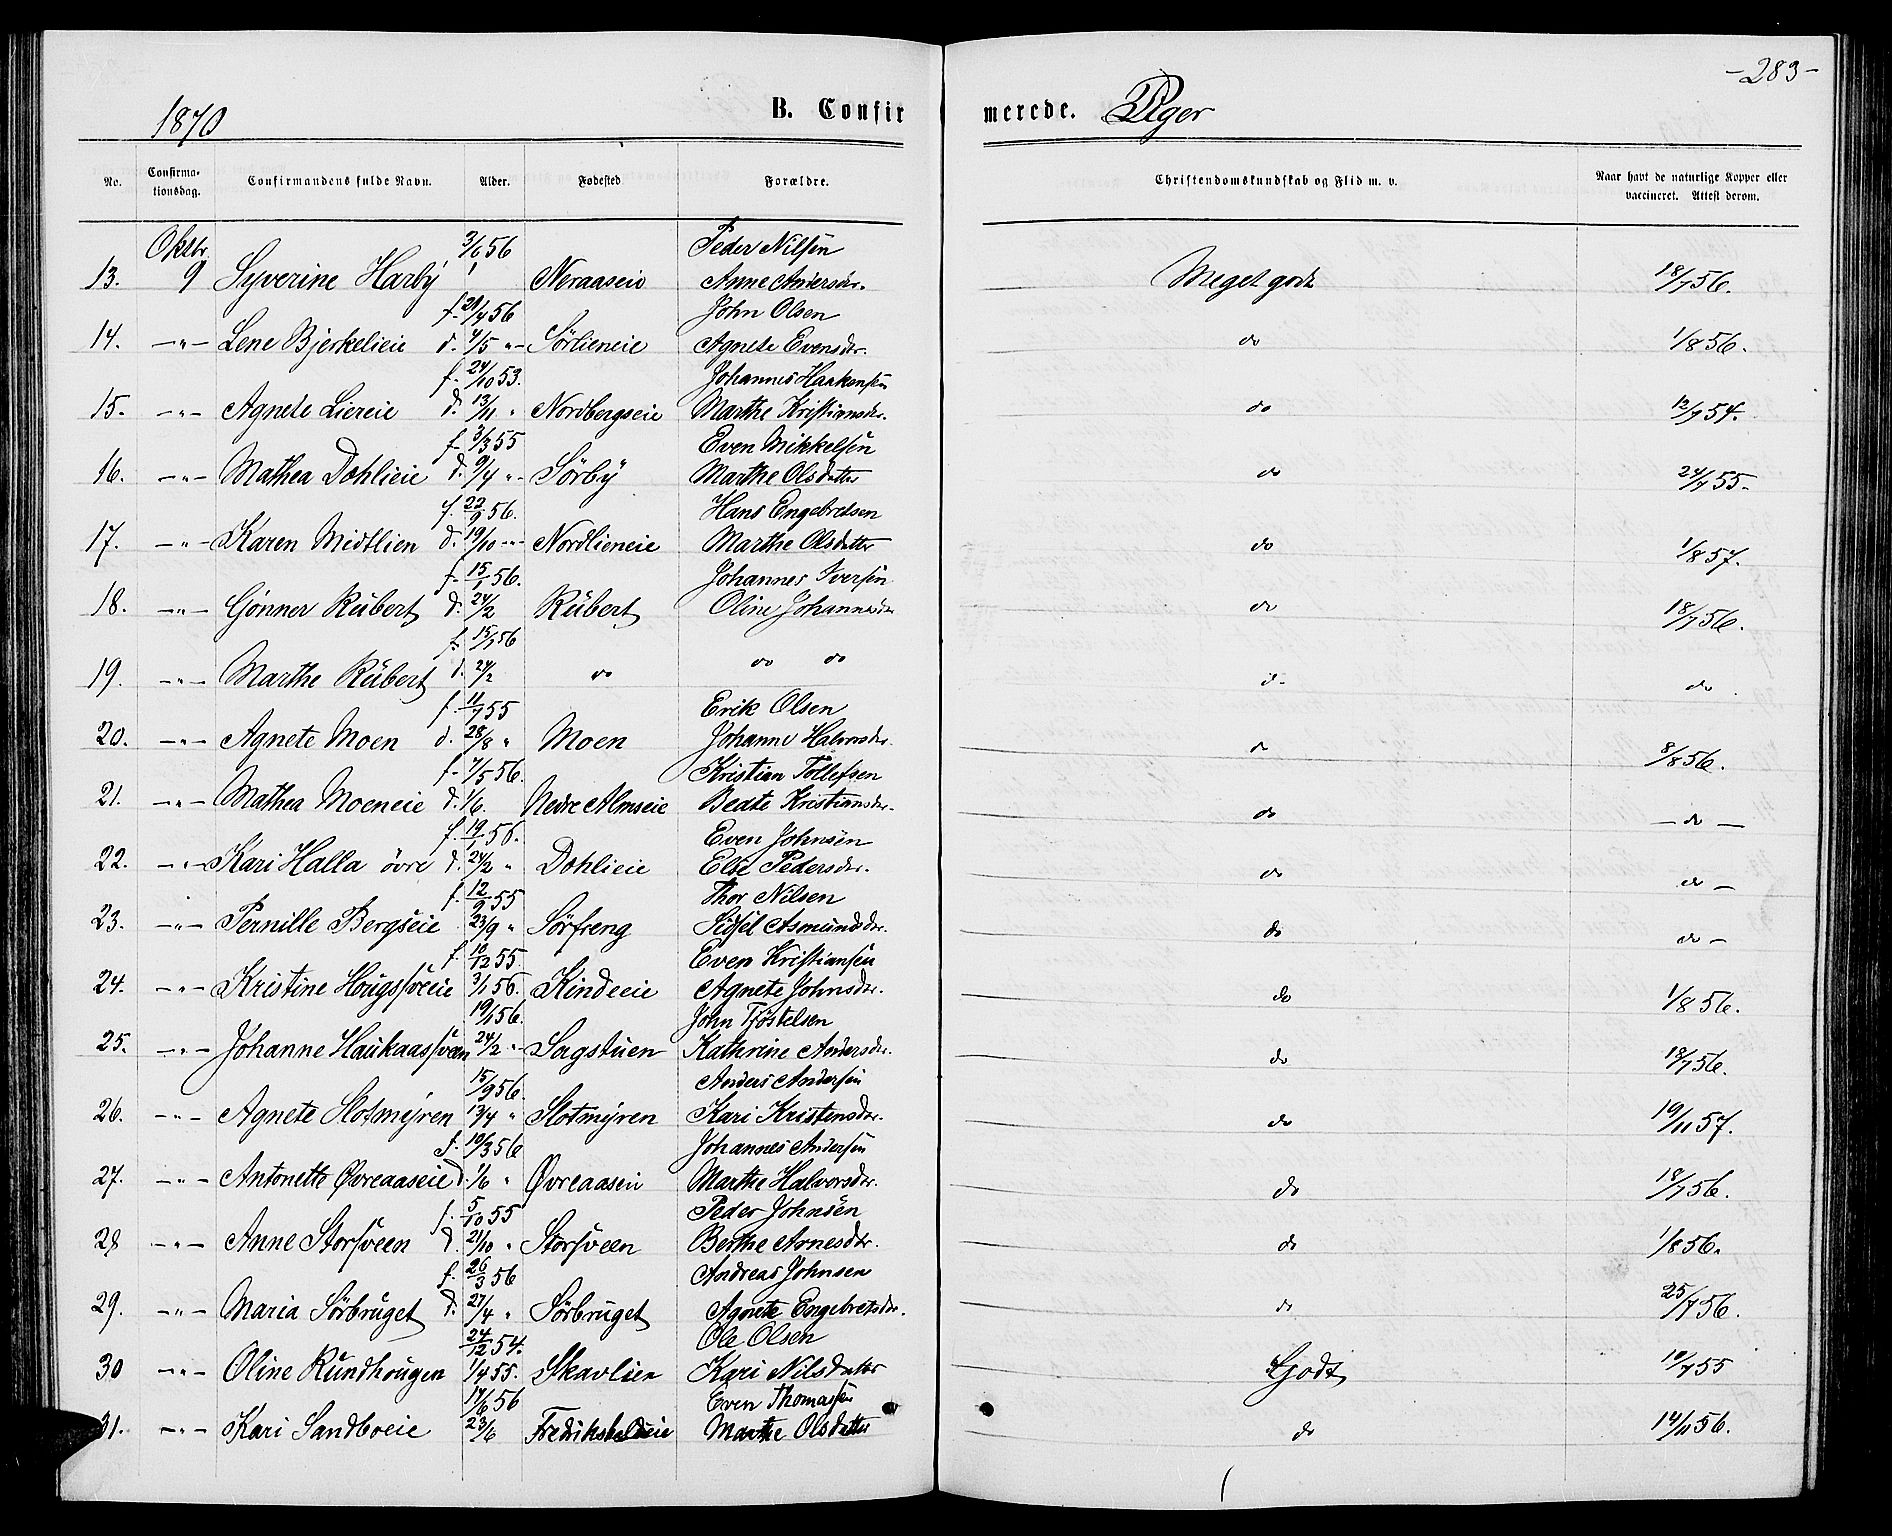 -283-
1870 B. Confirmerede. Piger
No. Confirma-tionsdag. Confirmandens fulde Navn. Alder. Fødested Forældre. Christendomskundskab og Flid m. v. Naar havt de naturlige Kopper eller vaccineret. Attest derom.
Oktbr 56 Peder Nilsen
13. 9 Syverine Harby Neraaseie Anne Andersdr. Meget godt 18/7 56.
f. 21/4 56 John Olsen
14. -"- Lene Bjerkelieie d. 4/5 "- Sörlieneie Agnete Evensdr. do 1/8 56.
f. 24/10 53. Johannes Haakensen
15. -"- Agnete Liereie d. 13/11 " Nordbergseie Marthe Kristiansdr. do 12/7 54.
f. 3/3 55 Even Mikkelsen
16. -"- Mathea Dohlieie d. 9/4 "- Sörby Marthe Olsdatter do 24/7 55.
f. 22/9 56. Hans Engebretsen
17. -"- Karen Midtlien d. 19/10 -"- Nordlieneie Marthe Olsdatter do 1/8 57.
f. 15/1 56. Johannes Iversen
18. -"- Gönner Rübert d. 24/2 Rübert Oline Johannesdr do 18/7 56.
f. 15/1 56
19. -"- Marthe Rübert d. 24/2 do do do d. do.
f. 11/7 55 Erik Olsen
20. -"- Agnete Moen d. 28/8 " Moen Johanne Halvorsdr. do 8/8 56.
f. 7/5 56. Kristian Tollefsen
21. -"- Mathea Moeneie d. 1/6. Nedre Almseie Beate Kristiansdr. do - do -
f. 19/1 56. Even Johnsen
22. -"- Kari Halla övre d. 24/2 " Dohlieie Else Pedersdr. do do -
f. 12/9 55 Thor Nilsen
23. -"- Pernille Bergseie 23/9 " Sörfreng Sidsel Asmundsdr. do do -
f. 10/12 55. Even Kristiansen
24. -"- Kristine Hougssveeie 3/1 56. Kindeeie Agnete Johnsdr. do 1/8 56.
19/1 56. John Tjöstelsen
25. -"- Johanne Haukaassveen 24/2 "- Sagstuen Kathrine Andersdr. do 18/7 56.
15/9 56. Anders Andersen
26. -"- Agnete Slotmyren 13/4 " Slotmyren Kari Kristensdr. do 19/11 57.
f. 10/3 56 Johannes Andersen
27. -"- Antonette Øvreaaseie d. 1/6 " Øvreaasen Marthe Halvorsdr. do 18/7 56.
f. 5/10 55 Peder Johnsen
28 -"- Anne Storsveen d. 21/10 " Storsveen Berthe Arnesdtr. do 1/8 56.
f. 26/3 56 Andreas Johnsen
29. -"- Maria Sörbruget d. 27/4 " Sörbruget Agnete Engebretsdr. do 25/7 56.
24/12 54. Ole Olsen
30 -"- Oline Rundhougen 1/4 55. Skavlien Kari Nilsdatter Godt 10/7 55
17/6 56 Even Thomassen
31. -"- Kari Sandboeie 23/6 Marthe Olsdatter do 14/11 56.